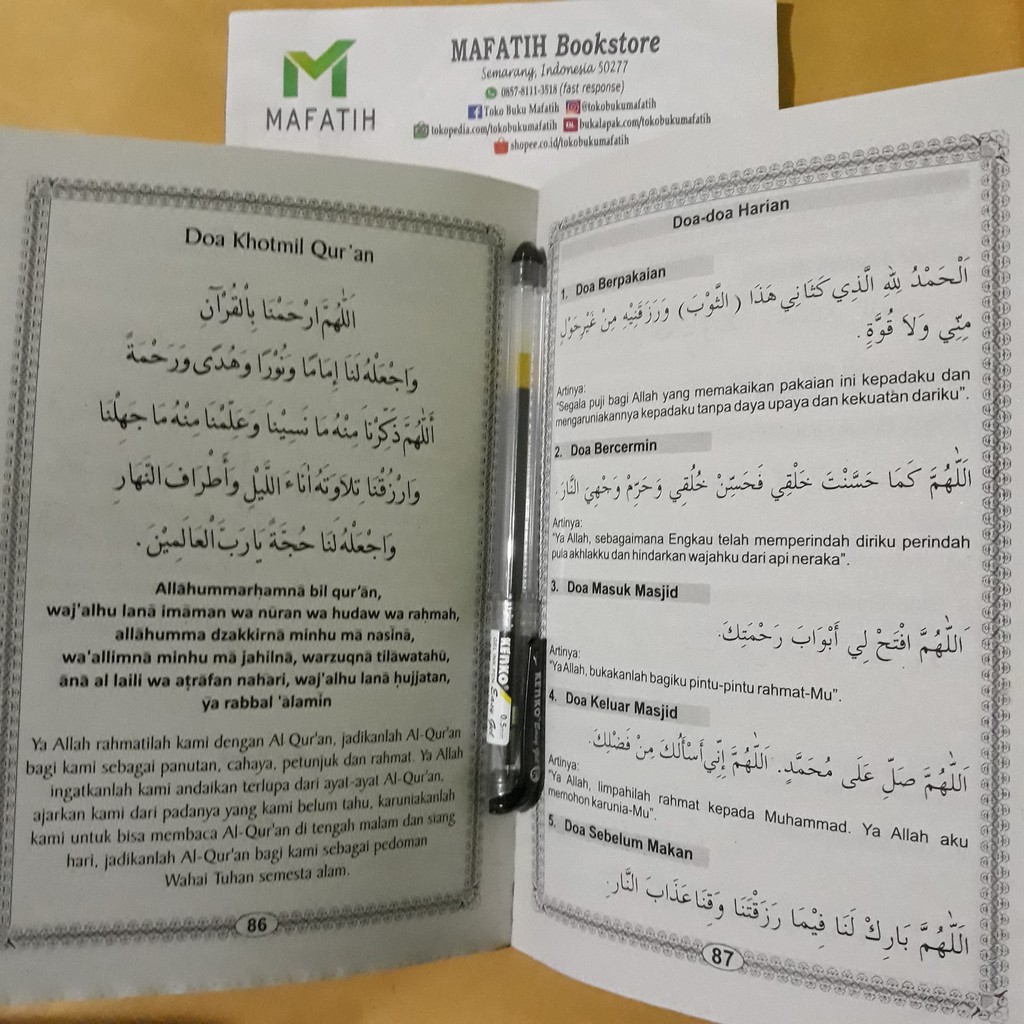 MAFATIH
MAFATIH Bookstore
Semarang, Indonesia 50277
0857-8111-3518 (fast response)
Toko Buku Mafatih @tokobukumafatih
tokopedia.com/tokobukumafatih bukalapak.com/tokobukumafatih
shopee.co.id/tokobukumafatih
Doa Khotmil Qur'an
اَللّٰهُمَّ ارْحَمْنَا بِالْقُرْآنِ
وَاجْعَلْهُ لَنَا إِمَامًا وَنُوْرًا وَهُدًى وَرَحْمَةً
اَللّٰهُمَّ ذَكِّرْنَا مِنْهُ مَا نَسِيْنَا وَعَلِّمْنَا مِنْهُ مَا جَهِلْنَا
وَارْزُقْنَا تِلَاوَتَهُ اٰنَاءَ اللَّيْلِ وَأَطْرَافَ النَّهَارِ
وَاجْعَلْهُ لَنَا حُجَّةً يَا رَبَّ الْعَالَمِيْنَ .
Allāhummarhamnā bil qur'ān,
waj'alhu lanā imāman wa nūran wa hudaw wa raḥmah,
allāhumma dzakkirnā minhu mā nasinā,
wa'allimnā minhu mā jahilnā, warzuqnā tilāwatahū,
ānā al laili wa aṭrāfan nahari, waj'alhu lanā ḥujjatan,
yā rabbal 'ālamin
Ya Allah rahmatilah kami dengan Al Qur'an, jadikanlah Al-Qur'an
bagi kami sebagai panutan, cahaya, petunjuk dan rahmat. Ya Allah
ingatkanlah kami andaikan terlupa dari ayat-ayat Al-Qur'an,
ajarkan kami dari padanya yang kami belum tahu, karuniakanlah
kami untuk bisa membaca Al-Qur'an di tengah malam dan siang
hari, jadikanlah Al-Qur'an bagi kami sebagai pedoman
Wahai Tuhan semesta alam.
86
KENKO
0.5mm
KENKO Easy Gel
Doa-doa Harian
1. Doa Berpakaian
اَلْحَمْدُ لِلّٰهِ الَّذِي كَثَانِي هَذَا (الثَّوْبَ) وَرَزَقَنِيْهِ مِنْ غَيْرِ حَوْلٍ
مِنِّي وَلَا قُوَّةٍ.
Artinya:
"Segala puji bagi Allah yang memakaikan pakaian ini kepadaku dan
mengaruniakannya kepadaku tanpa daya upaya dan kekuatan dariku".
2. Doa Bercermin
اَللّٰهُمَّ كَمَا حَسَّنْتَ خَلْقِي فَحَسِّنْ خُلُقِي وَحَرِّمْ وَجْهِيَ النَّارَ.
Artinya:
"Ya Allah, sebagaimana Engkau telah memperindah diriku perindah
pula akhlakku dan hindarkan wajahku dari api neraka".
3. Doa Masuk Masjid
اَللّٰهُمَّ افْتَحْ لِي أَبْوَابَ رَحْمَتِكَ.
Artinya:
"Ya Allah, bukakanlah bagiku pintu-pintu rahmat-Mu".
4. Doa Keluar Masjid
اَللّٰهُمَّ صَلِّ عَلَى مُحَمَّدٍ. اَللّٰهُمَّ إِنِّي أَسْأَلُكَ مِنْ فَضْلِكَ.
Artinya:
"Ya Allah, limpahilah rahmat kepada Muhammad. Ya Allah aku
memohon karunia-Mu".
5. Doa Sebelum Makan
اَللّٰهُمَّ بَارِكْ لَنَا فِيْمَا رَزَقْتَنَا وَقِنَا عَذَابَ النَّارِ.
87